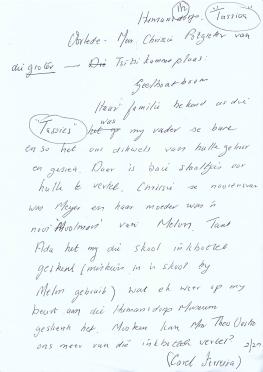 Humansdorp. "Tassies"
Oorlede - Mev. Chrissie Potgieter van
die groter — Die Tsitsikamma plaas:
Geelhoutboom
Haar familie bekend as die
"Tassies" was my vader se bure
en so het ons dikwels van hulle gehoor
en gesien. Daar is baie staaltjies oor
hulle te vertel. Chrissie se nooiensvan
was Meyer en haar moeder was 'n
nooi van Melon. Tant
Ada het my die skool inkboekie
geskenk (miskien in 'n skool by
Melon gebruik) wat ek weer op my
beurt aan die Humansdorp Museum
geskenk het. Miskien kan Mnr Theo
ons meer van die vertel?
2/21
(Carol Ferreira)